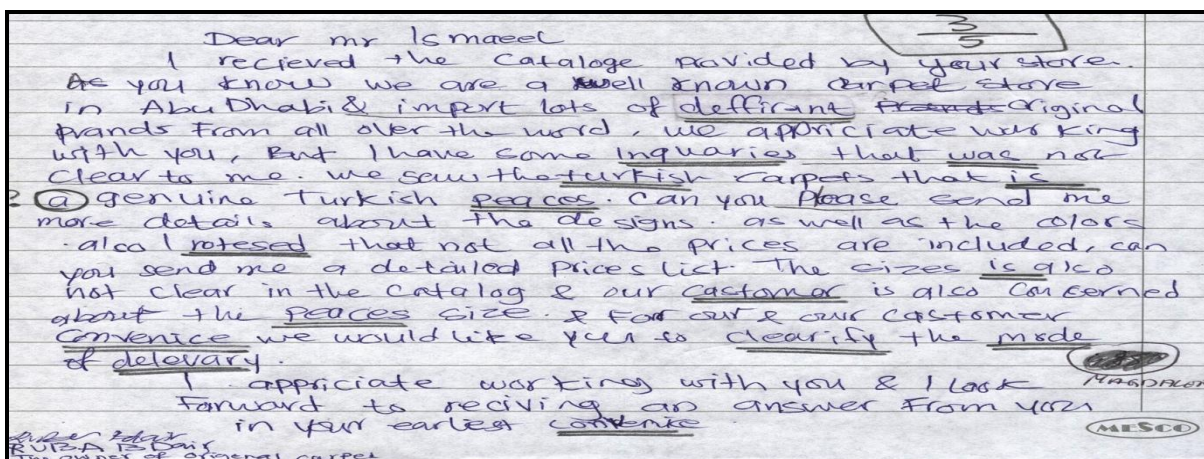 3
5
Dear mr Ismaeel
I recieved the Cataloge provided by your store.
As you know we are a well known carpet store
in Abu Dhabi & import lots of deffirant Original
prands from all over the word, we appriciate working
with you, But I have some Inquaries that was not
clear to me. we saw the turkish carpets that is
? a genuine Turkish peaces. Can you Please send me
more details about the designs. as well as the colors
. also I notesed that not all the prices are included, can
you send me a detailed Prices list. The sizes is also
not clear in the Catalog & our Castomer is also Conserned
about the peaces size. & for our & our castomer
Convenice we would like you to clearify the mode
of delevary.
I appriciate working with you & I look
Forward to reciving an answer From you
in your earliest convenice
MAGDALEN
MESCO
RUBA BDair
The owner of original carpet